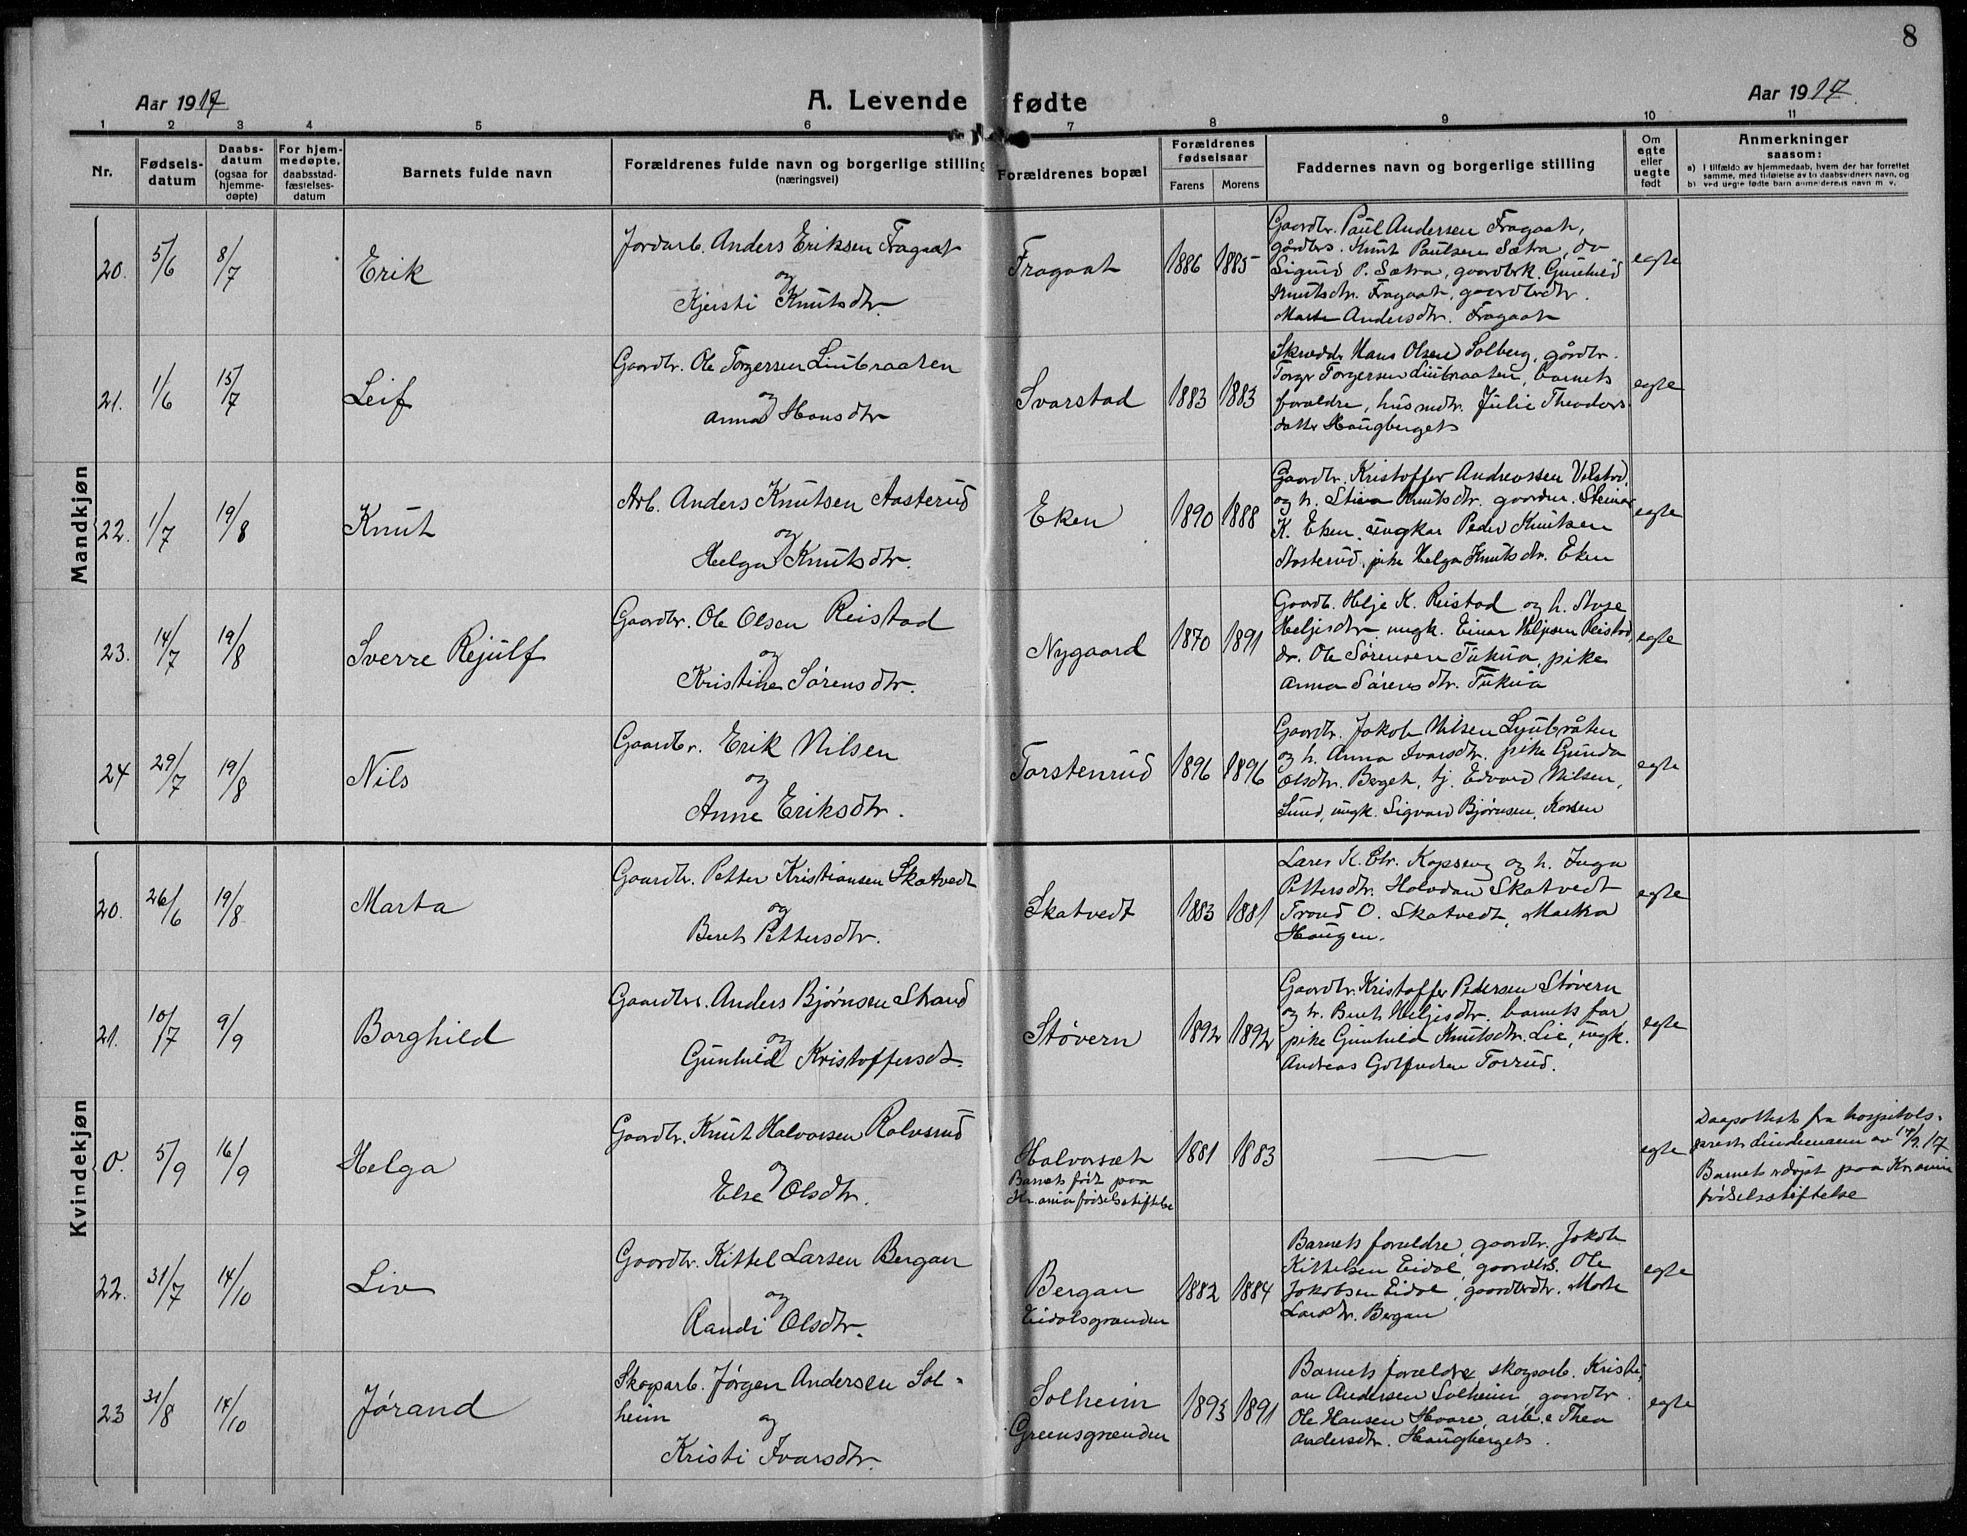 8
Aar 1917
A. Levende fødte
Aar 1917.
1 2 3 4 5 6 7 8 9 10 11
Nr.
Fødsels-
datum
Daabs-
datum
(ogsaa for
hjemme-
døpte)
For hjem-
medøpte,
daabsstad-
fæstelses-
datum
Barnets fulde navn
Forældrenes fulde navn og borgerlige stilling
(næringsvei)
Forældrenes bopæl
Forældrenes
fødselsaar
Farens Morens
Faddernes navn og borgerlige stilling
Om
egte
eller
uegte
født
Anmerkninger
saasom:
a) i tilfælde av hjemmedaab, hvem der har forrettet
samme, med tilføielse av to daabsvidners navn, og
b) ved uegte fødte barn anmelderens navn m. v.
Mandkjøn
20. 5/6 8/7 Erik
Jordarb. Anders Eriksen Fragaat
og
Kjersti Knutsdtr.
Fragaat 1886 1885
Gaardbr. Paul Andersen Fragaat,
gårdbrs. Knut Paulsen Sætra, do
Sigurd P. Sætra, gaardbrk. Gunhild
Knutsdtr. Fragaat, gaardbrdtr.
Marte Andersdtr. Fragaat
egte
21. 1/6 15/7 Leif
Gaardbr. Ole Torgersen Liubraaten
og
Anna Hansdtr
Svarstad 1883 1883
Skrædder Hans Olsen Solberg, gårdbr.
Torgr Torgersen Liubraaten, barnets
forældre, husmdtr. Julie Theodors
datter Haugberget
egte
22. 1/7 19/8 Knut
Arb. Anders Knutsen Aasterud
og
Helga Knutsdtr.
Eken 1890 1888
Gaardbr. Kristoffer Andreassen
og h. Knutsdtr. Steinar
K. Eken, ungkar Peder Knutsen
Aasterud, pike Helga Knutsdtr. Eken
egte
23. 14/7 19/8 Sverre Rejulf
Gaardbr. Ole Olsen Reistad
og
Kristine Sørensdtr.
Nygaard 1870 1891
Gaardb. Helje K. Reistad og h.
Heljesdtr, ungk. Einar Heljesen Reistad,
do. Ole Sørensen Tukua, pike
Anna Sørensdtr. Tukua
egte
24 29/7 19/8 Nils
Gaardbr. Erik Nilsen
og
Anne Eriksdtr.
Torstenrud 1896 1896
Gaardbr. Jakob Nilsen Ljubråten
og h. Anna Ivarsdtr. pike Gunda
Olsdtr. Berget, tj. Edvard Nilsen,
Lund, ungk. Sigvard Bjørnsen,
egte
Kvindekjøn
20. 26/6 19/8 Marta
Gaardbr. Petter Kristiansen Skatvedt
og
Berit Pettersdtr.
Skatvedt 1883 1881
Lærer K. Chr. Kopseng og h. Inga
Pettersdtr. Halvdan Skatvedt
Trond O. Skatvedt, Martha
Haugen.
egte
21. 10/7 9/9 Borghild
Gaardbr. Anders Bjørnsen Strand
og
Gunhild Kristoffersdt.
Støvern 1892 1892
Gaardbr. Kristoffer Pedersen Støvern
og h. Berit Heljesdtr. barnets far
pike Gunhild Knutsdtr. Lie, ungk.
Andreas Torrud.
egte
0. 5/9 16/9 Helga
Gaardbr. Knut Halvorsen Rolvsrud
og
Else Olsdtr.
Halvorsæt
Barnet født paa
Kr.ania fødselsstiftelse
1881 1883
egte
Daapattest fra hospitals-
prest Lindemann av 17/9 17.
Barnet døpt paa Kr.ania
fødselsstiftelse
22. 31/7 14/10 Liv
Gaardbr. Kittel Larsen Bergan
og
Randi Olsdtr.
Bergan
Eidalsgranden
1882 1884
Barnets forældre, gaardbr. Jakob
Kittelsen Eidal, gaardbrs. Ole
Jakobsen Eidal, gaardbrdtr. Marte
Larsdtr. Bergan
egte
23 31/8 14/10 Jørand
Skogsarb. Jørgen Andersen Sol-
heim
og
Kristi Ivarsdtr.
Solheim
Greensgrænden
1893 1891
Barnets forældre skogsarb. Kristi-
an Andersen Solheim, gaardbr.
Ole Hansen Hvare, arb.e Thea
Andersdtr. Haugberget.
egte